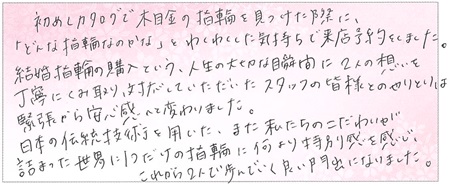 初めカタログで木目金の指輪を見つけた際に、
「どんな指輪なのかな」とわくわくした気持ちで来店予約をしました。
結婚指輪の購入という、人生の大切な瞬間に2人の想いを
丁寧にくみ取り、対応していただいたスタッフの皆様とのやりとりは
緊張から安心感へと変わりました。
日本の伝統技術を用いた、また私たちのこだわりが
詰まった世界に1つだけの指輪に何より特別感を感じ、
これから2人で歩んでいく良い門出になりました。